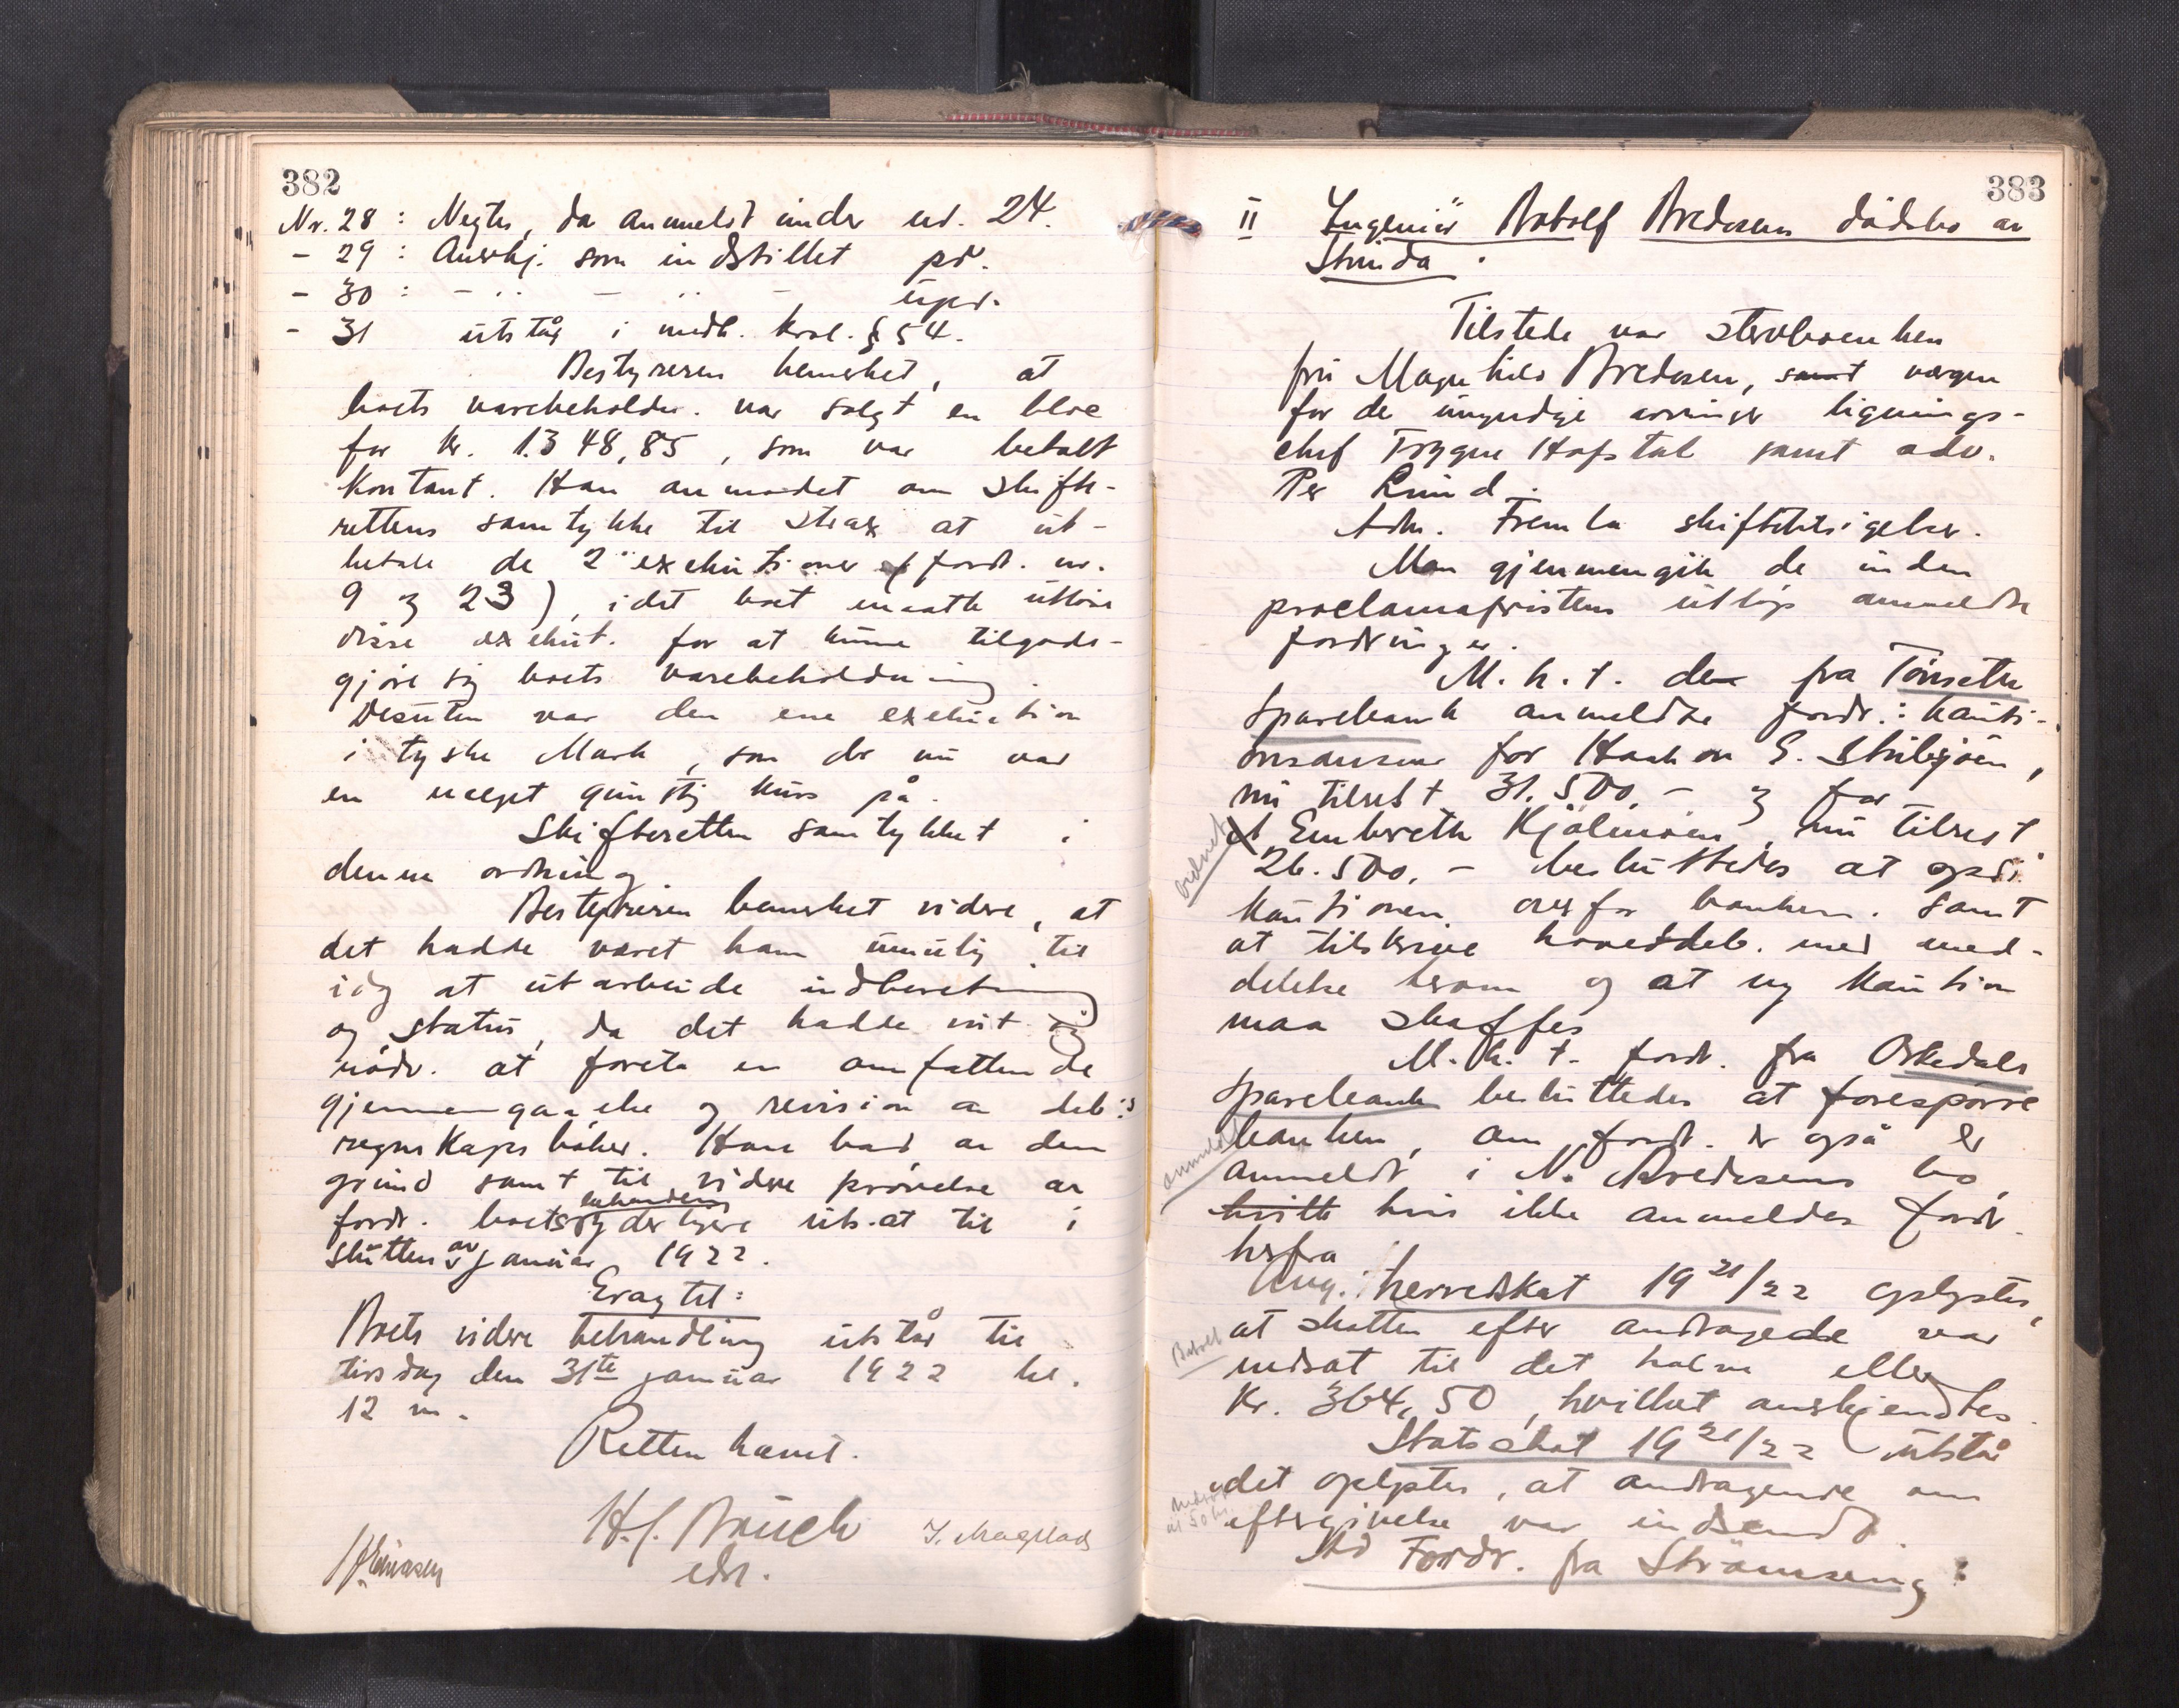 382
Nr. 28 : Negtes, da anmeldt under nr. 24.
- 29 : Anerkj. som indstillet pr.
- 30 : - " - " - upr.
- 31 utstår i medh. konkl. § 54.
Bestyreren bemerket, at
boets varebeholdn. var solgt en bloc
for kr. 1348,85, som var betalt
kontant. Han anmodet om skifte-
rettens samtykke til strax at ut-
betale de 2 exekutioner (fordr. nr.
9 og 23), idet boet maatte utløse
disse exekut. for at kunne tilgode-
gjøre sig boets varebeholdning.
Desuten var den ene exekution
i tyske Mark, som der nu var
en meget gunstig kurs på.
Skifteretten samtykket i
denne ordning
Bestyreren bemerket videre, at
det hadde været ham umulig til
idag at utarbeide indberetning
og status, da det hadde vist sig
nødv. at foreta en omfattende
gjennemgaaelse og revision av deb:s
regnskapsbøker. Han bad av den
grund samt til videre prøvelse av
fordr. boets yderligere behandling uts.at til i
slutten av januar 1922.
Eragtet:
Boets videre behandling utstår til
tirsdag den 31te januar 1922 kl.
12 m.
Retten hævet.
H. J. Bauck
edr.
383
II Ingeniør Botolf Bredesens dødsbo av
Strinda.
Tilstede var stervboenken
fru Magnhild Bredesen, samt vergen
for de umyndige arvinger lignings-
chef Trygve Hofstad samt adv.
Per Lund.
Adm. Fremla skiftetilsigelser.
Man gjennemgik de inden
proclamafristens utløp anmeldte
fordringer.
M.h.t. den fra Tønsette
Sparebank anmeldte fordr.: kauti-
onsansvar for Haakon E. Stubsjøen,
nu tilrest 31.500.- og for
Embrett Kjølmoen, nu tilrest
ordnet
26.500.- besluttedes at opsi
kautionen overfor banken. samt
at tilskrive hoveddeb. med med-
delelse herom og at ny kaution
maa skaffes
M.h.t. fordr. fra Orkedals
Sparebank besluttedes at forespørre
banken, om fordr. er også er
anmeldt i N. Bredesens bo,
hvilk hvis ikke anmeldes fordr.
herfra
Ang. herredskat 19 21/22 oplystes,
at skatten efter andragede var
Betalt
nedsat til det halve eller
Kr. 364,50, hvilket anerkjendtes.
Statsskat 19 21/22 utstår
idet oplystes, at andragende om
eftergivelse var indsendt
Ad Fordr. fra Strømseng: